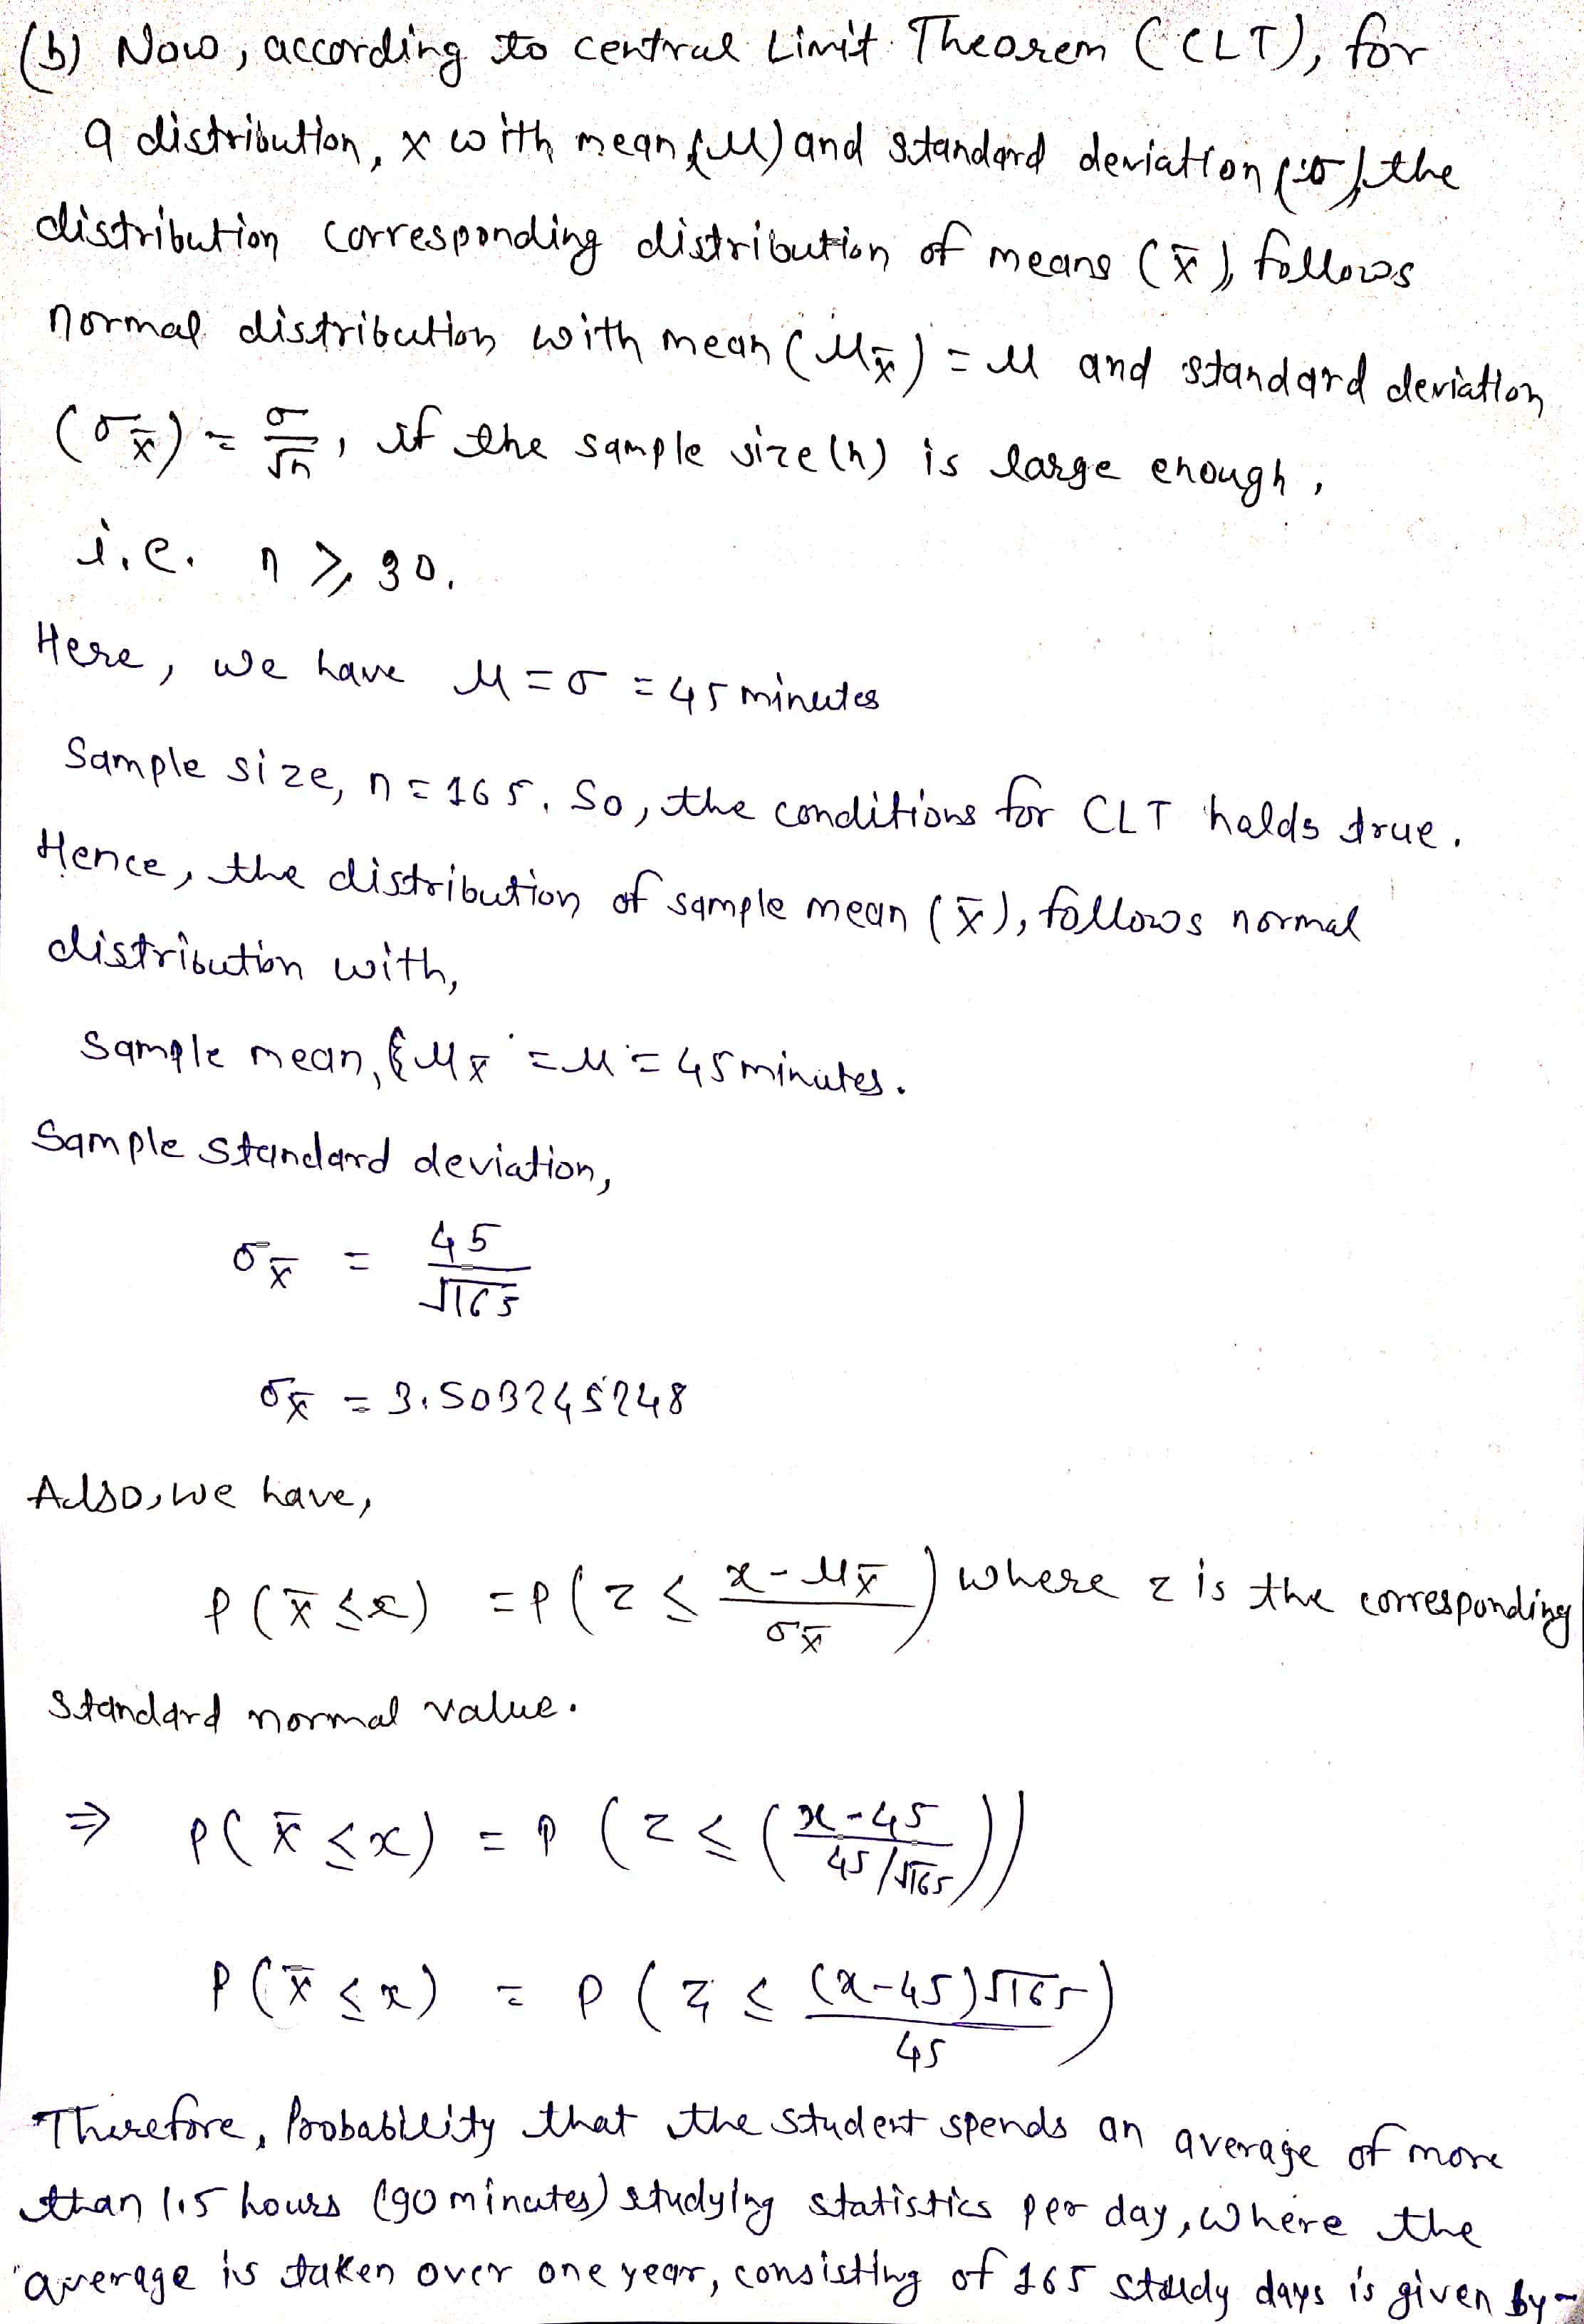 (b) Now, according to central Limit Theorem (CLT), for
a distribution, x with mean (μ) and standard deviation (σ), the
distribution corresponding distribution of means (x̄), follows
normal distribution with mean (μx̄) = μ and standard deviation
(σx̄) = σ/√n, if the sample size (n) is large enough,
i.e. n ≥ 30.
Here, we have μ = σ = 45 minutes
Sample size, n = 165. So, the conditions for CLT holds true.
Hence, the distribution of sample mean (x̄), follows normal
distribution with,
Sample mean, μx̄ = μ = 45 minutes.
Sample standard deviation,
σx̄ = 45/√165
σx̄ = 3.503245248
Also, we have,
P(x̄ ≤ x) = P(z ≤ (x-μx̄)/σx̄) where z is the corresponding
standard normal value.
⇒ P(x̄ ≤ x) = P(z ≤ ((x-45)/(45/√165)))
P(x̄ ≤ x) = P(z ≤ (x-45)√165/45)
Therefore, Probability that the student spends an average of more
than 1.5 hours (90 minutes) studying statistics per day, where the
average is taken over one year, consisting of 165 study days is given by-